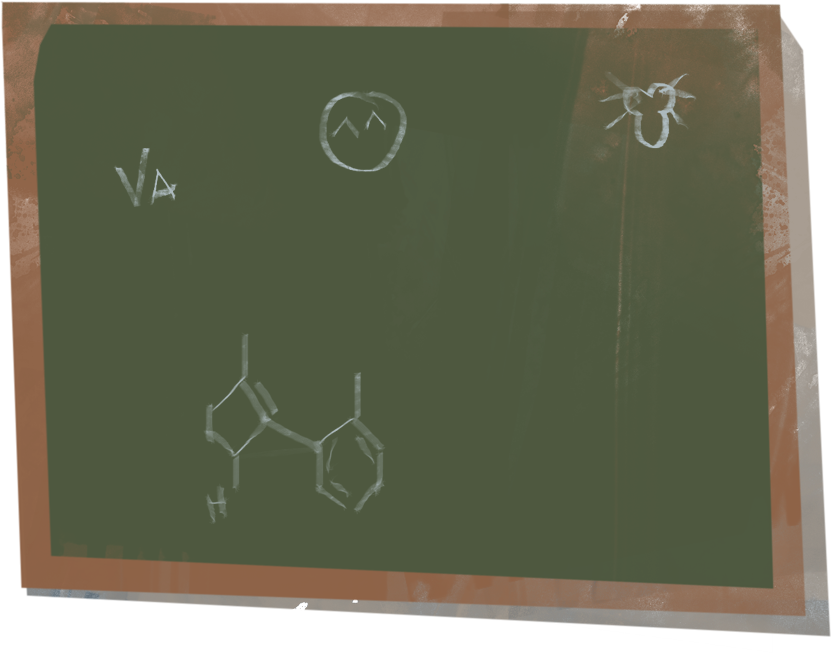 VA
H